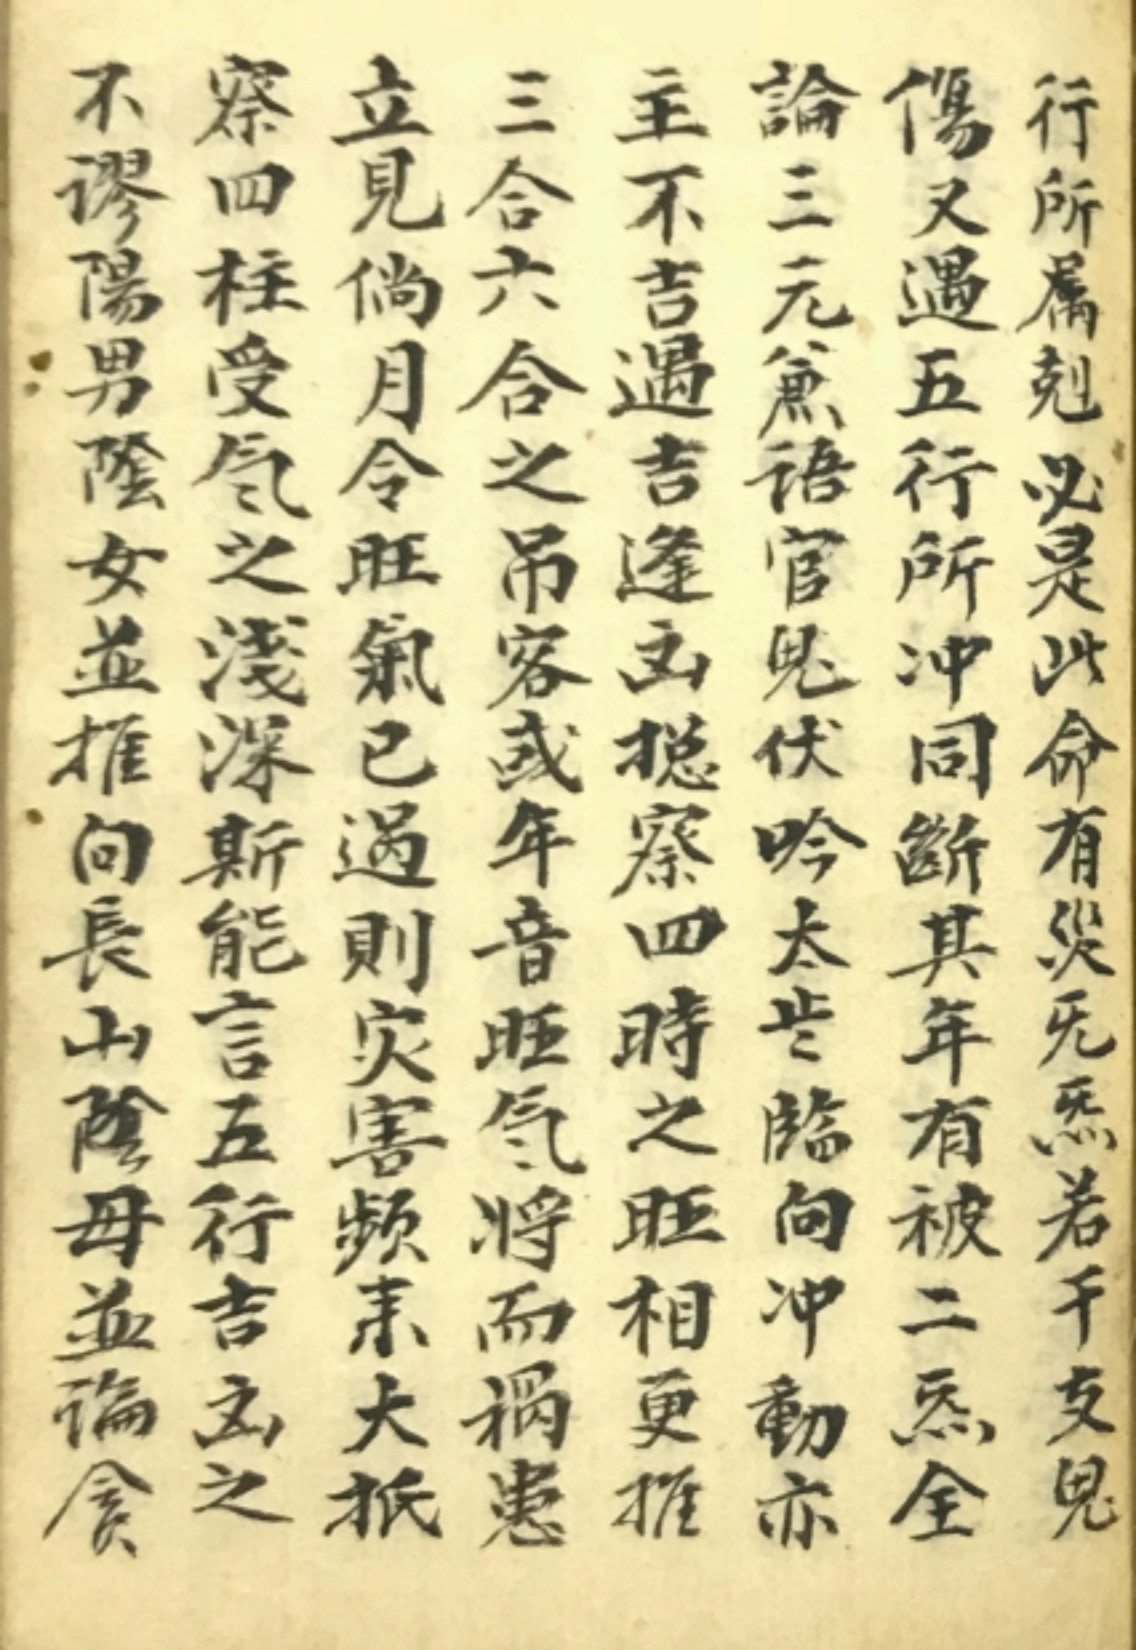 行所属剋必是此命有災旡炁若干支鬼
傷又遇五行所冲同斷其年有被二炁全
論三元兼語官鬼伏吟太歲臨向冲動亦
主不吉遇吉逢凶捴察四時之旺相更推
三合六合之吊客或年音旺气將而禍患
立見倘月令旺氣已過則灾害頻来大抵
察四柱受气之淺深斯能言五行吉凶之
不謬陽男陰女並推向長山陰母並論貪